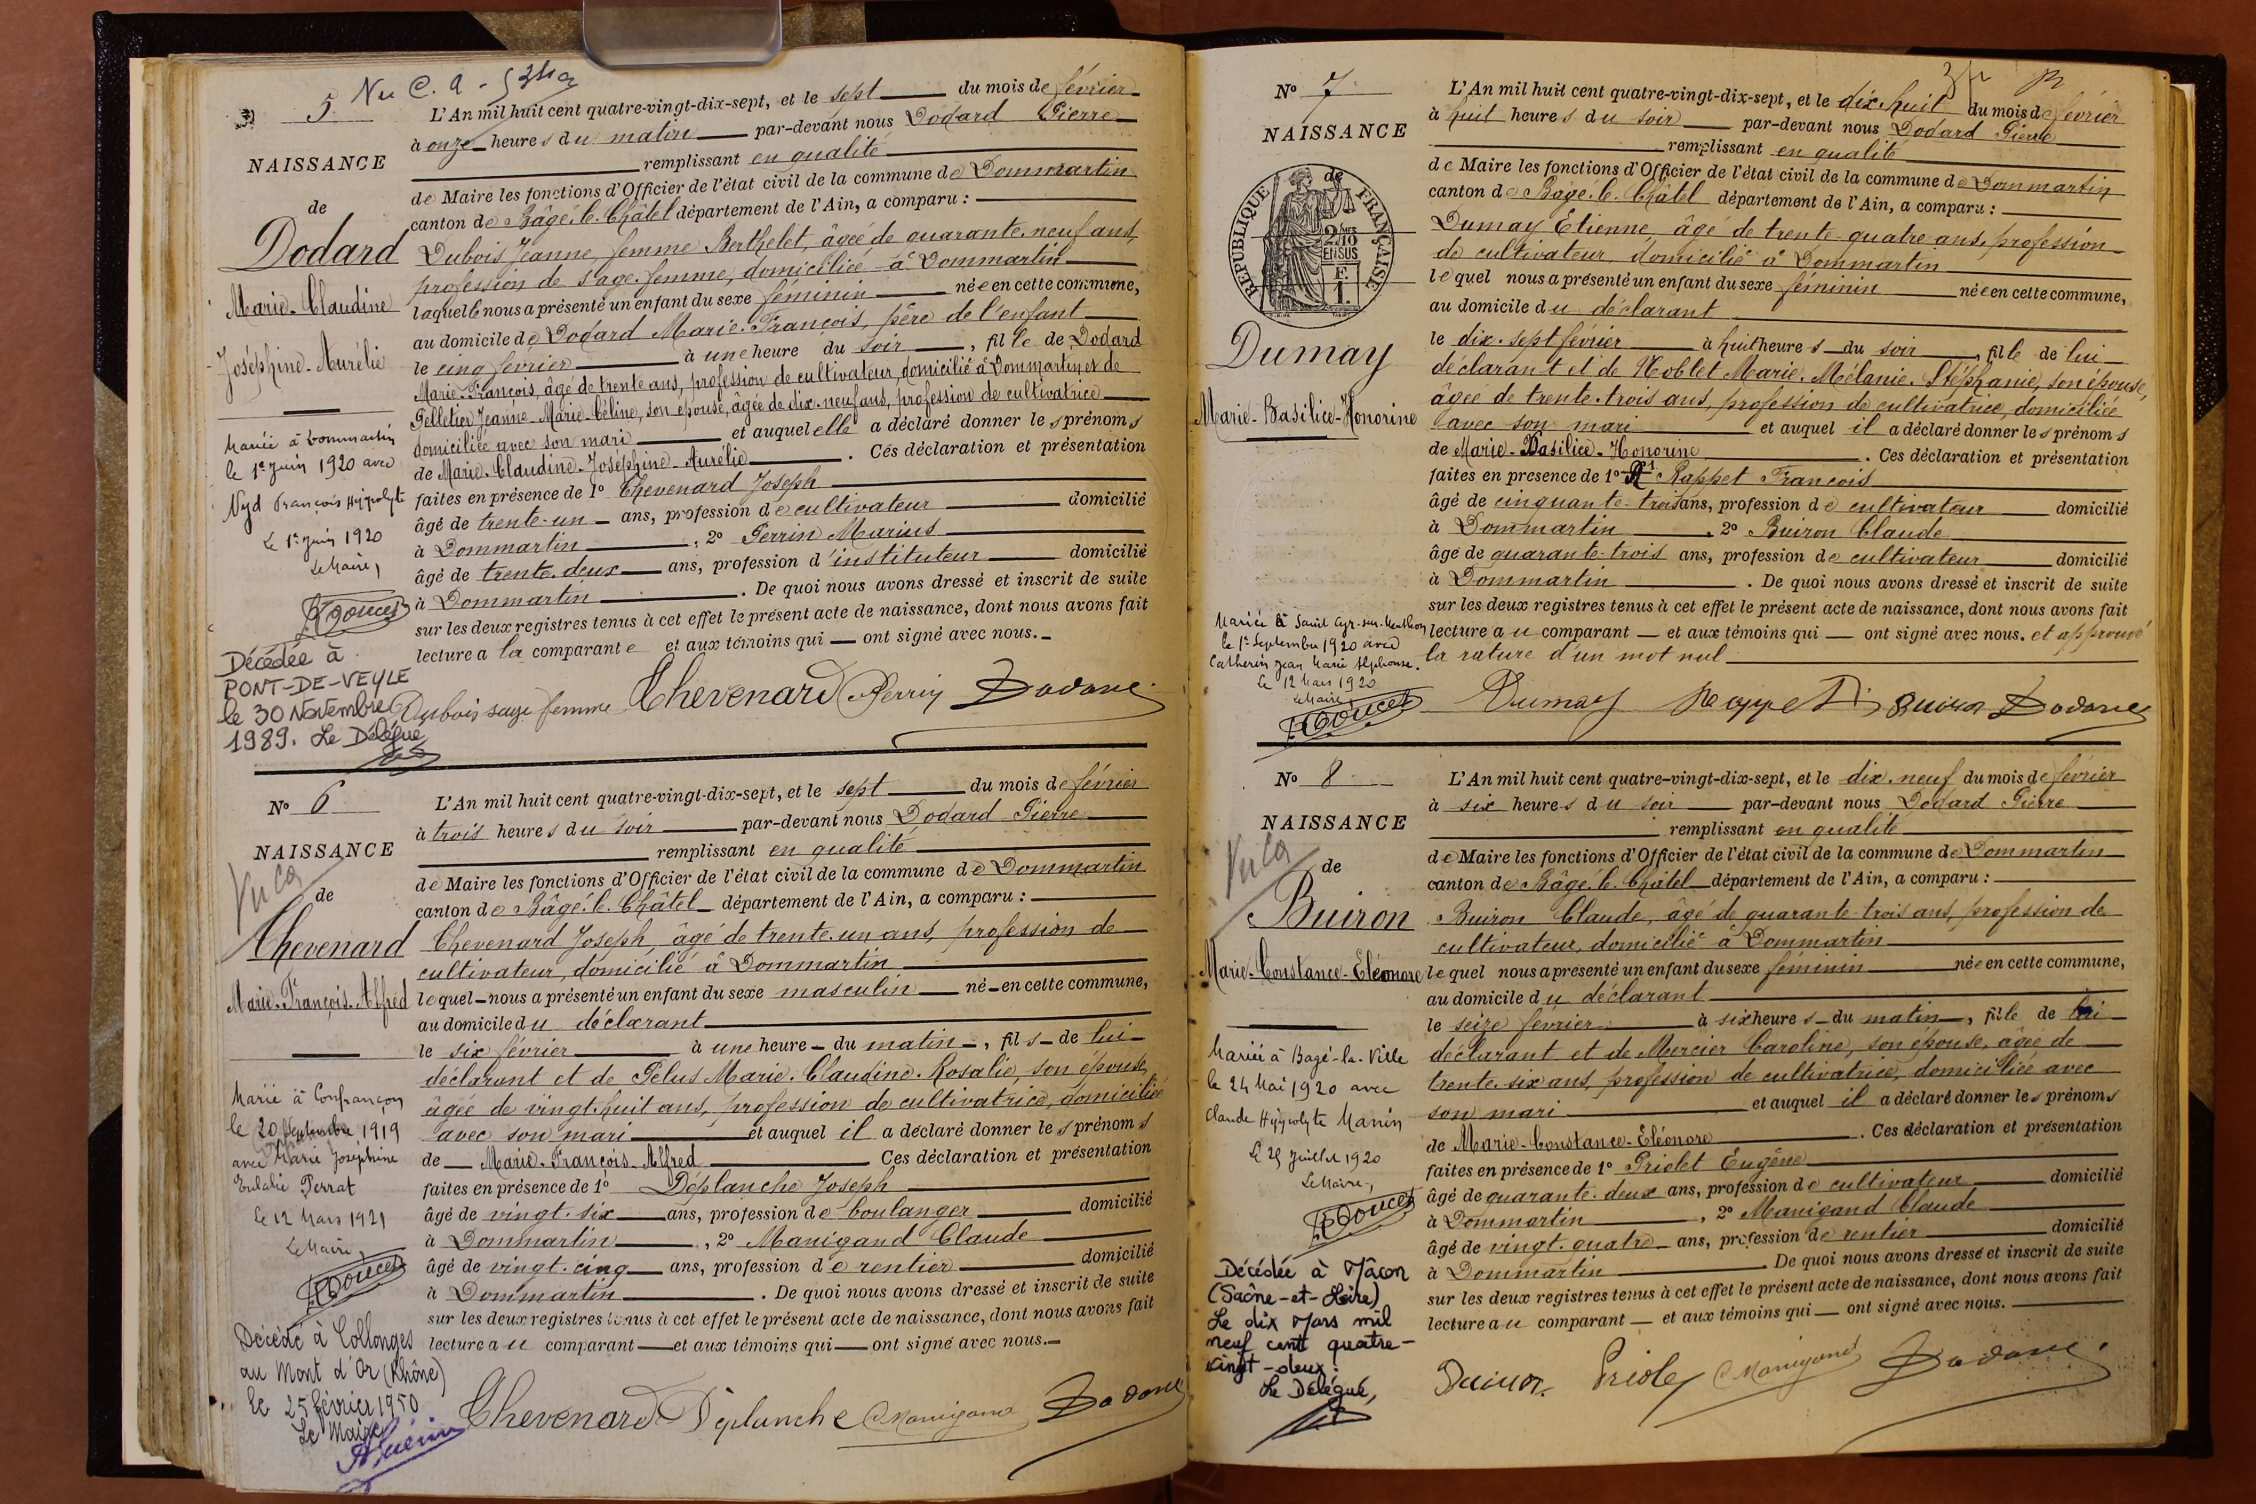 5
NAISSANCE
de
Dodard
Marie-Claudine
Joséphine-Aurélie
Mariée à Dommartin
le 1er Juin 1920 avec
Nyd François Hyppolyte
Le 1er Juin 1920
Le Maire,
Décédée à
PONT-DE-VEYLE
le 30 Novembre
1989. Le Délégué
L'An mil huit cent quatre-vingt-dix-sept, et le sept du mois de février
à onze heures du matin par-devant nous Dodard Pierre
remplissant en qualité
de Maire les fonctions d'Officier de l'état civil de la commune de Dommartin
canton de Bâgé-le-Châtel département de l'Ain, a comparu :
Dubois Jeanne, femme Berthelet, âgée de quarante-neuf ans,
profession de sage-femme, domiciliée à Dommartin
laquelle nous a présenté un enfant du sexe féminin née en cette commune,
au domicile de Dodard Marie-François, père de l'enfant
le cinq février à une heure du soir, fille de Dodard
Marie-François, âgé de trente ans, profession de cultivateur, domicilié à Dommartin et de
Pelletier Jeanne-Marie-Céline, son épouse, âgée de dix-neuf ans, profession de cultivatrice
domiciliée avec son mari et auquel elle a déclaré donner les prénoms
de Marie-Claudine-Joséphine-Aurélie. Ces déclaration et présentation
faites en présence de 1° Chevenard Joseph
âgé de trente-un ans, profession de cultivateur domicilié
à Dommartin, 2° Perrin Marius
âgé de trente-deux ans, profession d'instituteur domicilié
à Dommartin. De quoi nous avons dressé et inscrit de suite
sur les deux registres tenus à cet effet le présent acte de naissance, dont nous avons fait
lecture à la comparante et aux témoins qui ont signé avec nous.
Dubois sage femme Chevenard Perrin Dodard
N° 6
NAISSANCE
de
Chevenard
Marie-François-Alfred
Marié à Confrançon
le 20 Septembre 1919
avec Marie Joséphine
Eulalie Perrat
Le 12 Mars 1921
Le Maire,
Décédé à Collonges
au Mont d'Or (Rhône)
le 25 février 1950
Le Maire
L'An mil huit cent quatre-vingt-dix-sept, et le sept du mois de février
à trois heures du soir par-devant nous Dodard Pierre
remplissant en qualité
de Maire les fonctions d'Officier de l'état civil de la commune de Dommartin
canton de Bâgé-le-Châtel département de l'Ain, a comparu :
Chevenard Joseph, âgé de trente-un ans, profession de
cultivateur, domicilié à Dommartin
lequel nous a présenté un enfant du sexe masculin né en cette commune,
au domicile du déclarant
le six février à une heure du matin, fils de lui
déclarant et de Pelus Marie-Claudine-Rosalie, son épouse,
âgée de vingt-huit ans, profession de cultivatrice, domiciliée
avec son mari et auquel il a déclaré donner les prénoms
de Marie-François-Alfred Ces déclaration et présentation
faites en présence de 1° Déplanche Joseph
âgé de vingt-six ans, profession de boulanger domicilié
à Dommartin, 2° Manigand Claude
âgé de vingt-cinq ans, profession de rentier domicilié
à Dommartin. De quoi nous avons dressé et inscrit de suite
sur les deux registres tenus à cet effet le présent acte de naissance, dont nous avons fait
lecture au comparant et aux témoins qui ont signé avec nous.
Chevenard Déplanche C Manigand Dodard
N° 7
NAISSANCE
de
REPUBLIQUE FRANÇAISE
2/10 EN SUS
F. 1.
Dumay
Marie-Basilice-Honorine
Mariée à Saint Cyr-sur-Menthon
le 1er Septembre 1920 avec
Catherin Jean Marie Alphonse.
Le 12 Mars 1920
Le Maire
L'An mil huit cent quatre-vingt-dix-sept, et le dix-huit du mois de février
à huit heures du soir par-devant nous Dodard Pierre
remplissant en qualité
de Maire les fonctions d'Officier de l'état civil de la commune de Dommartin
canton de Bâgé-le-Châtel département de l'Ain, a comparu :
Dumay Etienne âgé de trente-quatre ans, profession
de cultivateur, domicilié à Dommartin
lequel nous a présenté un enfant du sexe féminin née en cette commune,
au domicile du déclarant
le dix-sept février à huit heures du soir, fille de lui
déclarant et de Noblet Marie-Mélanie-Stéphanie, son épouse,
âgée de trente-trois ans, profession de cultivatrice, domiciliée
avec son mari et auquel il a déclaré donner les prénoms
de Marie-Basilice-Honorine. Ces déclaration et présentation
faites en présence de 1° Rappet François
âgé de cinquante-trois ans, profession de cultivateur domicilié
à Dommartin, 2° Buiron Claude
âgé de quarante-trois ans, profession de cultivateur domicilié
à Dommartin. De quoi nous avons dressé et inscrit de suite
sur les deux registres tenus à cet effet le présent acte de naissance, dont nous avons fait
lecture au comparant et aux témoins qui ont signé avec nous. et approuvé
la rature d'un mot nul
Dumay Rappet Buiron Dodard
N° 8
NAISSANCE
de
Buiron
Marie-Constance-Eléonore
Mariée à Bagé-la-Ville
le 24 Mai 1920 avec
Claude Hyppolyte Manin
Juillet 1920
Le Maire,
Décédée à Mâcon
(Saône-et-Loire)
Le dix Mars mil
neuf cent quatre-
vingt-deux.
Le Délégué,
L'An mil huit cent quatre-vingt-dix-sept, et le dix-neuf du mois de février
à six heures du soir par-devant nous Dodard Pierre
remplissant en qualité
de Maire les fonctions d'Officier de l'état civil de la commune de Dommartin
canton de Bâgé-le-Châtel département de l'Ain, a comparu :
Buiron Claude, âgé de quarante-trois ans, profession de
cultivateur, domicilié à Dommartin
lequel nous a présenté un enfant du sexe féminin née en cette commune,
au domicile du déclarant
le seize février à six heures du matin, fille de lui
déclarant et de Mercier Caroline, son épouse, âgée de
trente-six ans, profession de cultivatrice, domiciliée avec
son mari et auquel il a déclaré donner les prénoms
de Marie-Constance-Eléonore. Ces déclaration et présentation
faites en présence de 1° Priolet Eugène
âgé de quarante-deux ans, profession de cultivateur domicilié
à Dommartin, 2° Manigand Claude
âgé de vingt-quatre ans, profession de rentier domicilié
à Dommartin De quoi nous avons dressé et inscrit de suite
sur les deux registres tenus à cet effet le présent acte de naissance, dont nous avons fait
lecture au comparant et aux témoins qui ont signé avec nous.
Buiron Priolet C Manigand Dodard